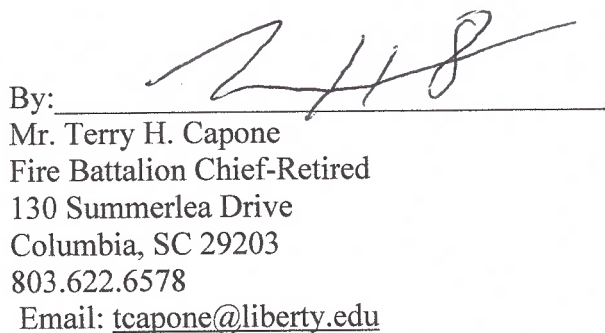 By:
Mr. Terry H. Capone
Fire Battalion Chief-Retired
130 Summerlea Drive
Columbia, SC 29203
803.622.6578
Email: tcapone@liberty.edu